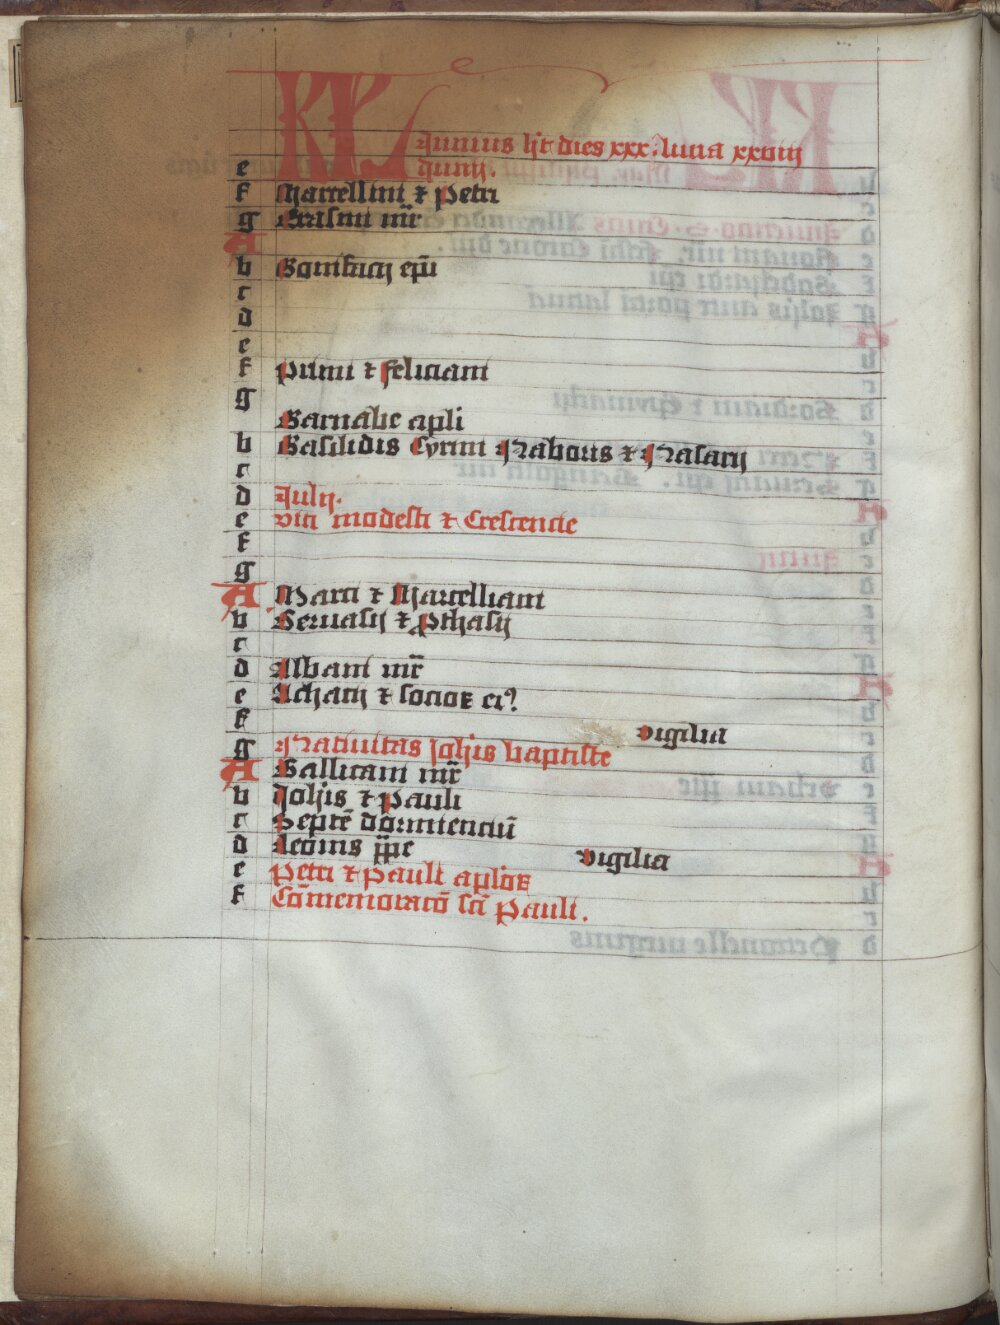 KL Junius hꝫ dies xxx. luna xxviiij
e Junij.
f Marcellini ⁊ Petri
g Erasmi mr̄
A
b Bonifacij ep̄i
c
d
e
f Primi ⁊ feliciani
g
Barnabe apl̄i
b Basilidis Cyrini Naboris ⁊ Nasarij
c
d Julij.
e viti modesti ⁊ Crescencie
f
g
A Marci ⁊ Marcelliani
b Geruasij ⁊ ꝓthasij
c
d Albani mr̄
e Achacij ⁊ socioꝝ eiꝰ
f vigilia
g Natiuitas joh̄is baptiste
A Gallicani mr̄
b Joh̄is ⁊ Pauli
c Septē dormienciū
d Leonis pp̄e vigilia
e Petri ⁊ Pauli apl̄oꝝ
f Cōmemoracō sc̄i Pauli.